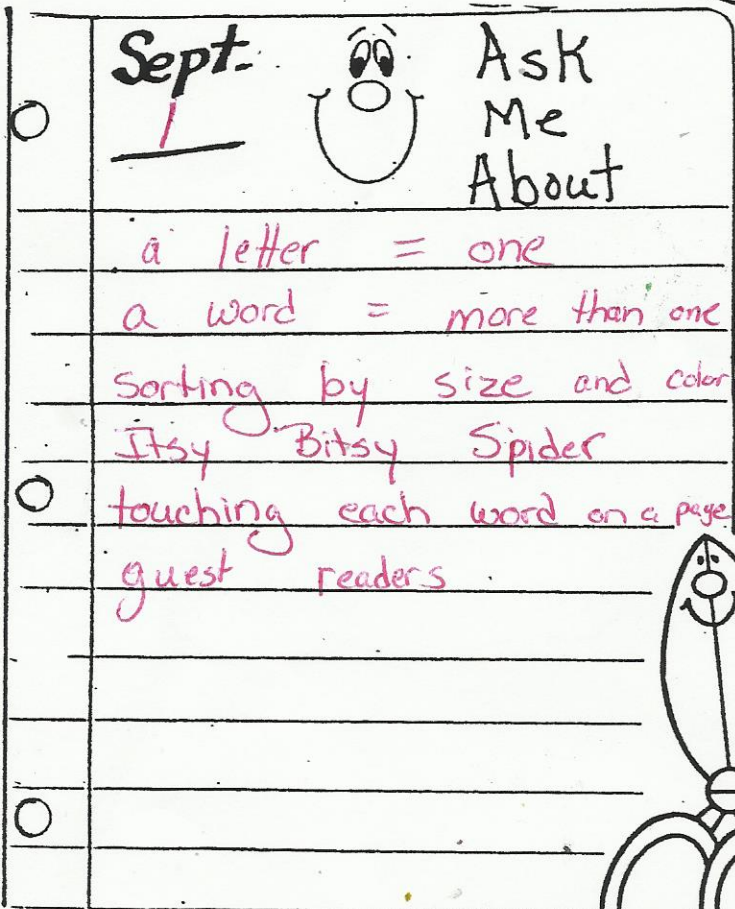 Sept. Ask
1 Me
About
a letter = one
a word = more than one
Sorting by size and color
Itsy Bitsy Spider
touching each word on a page
guest readers